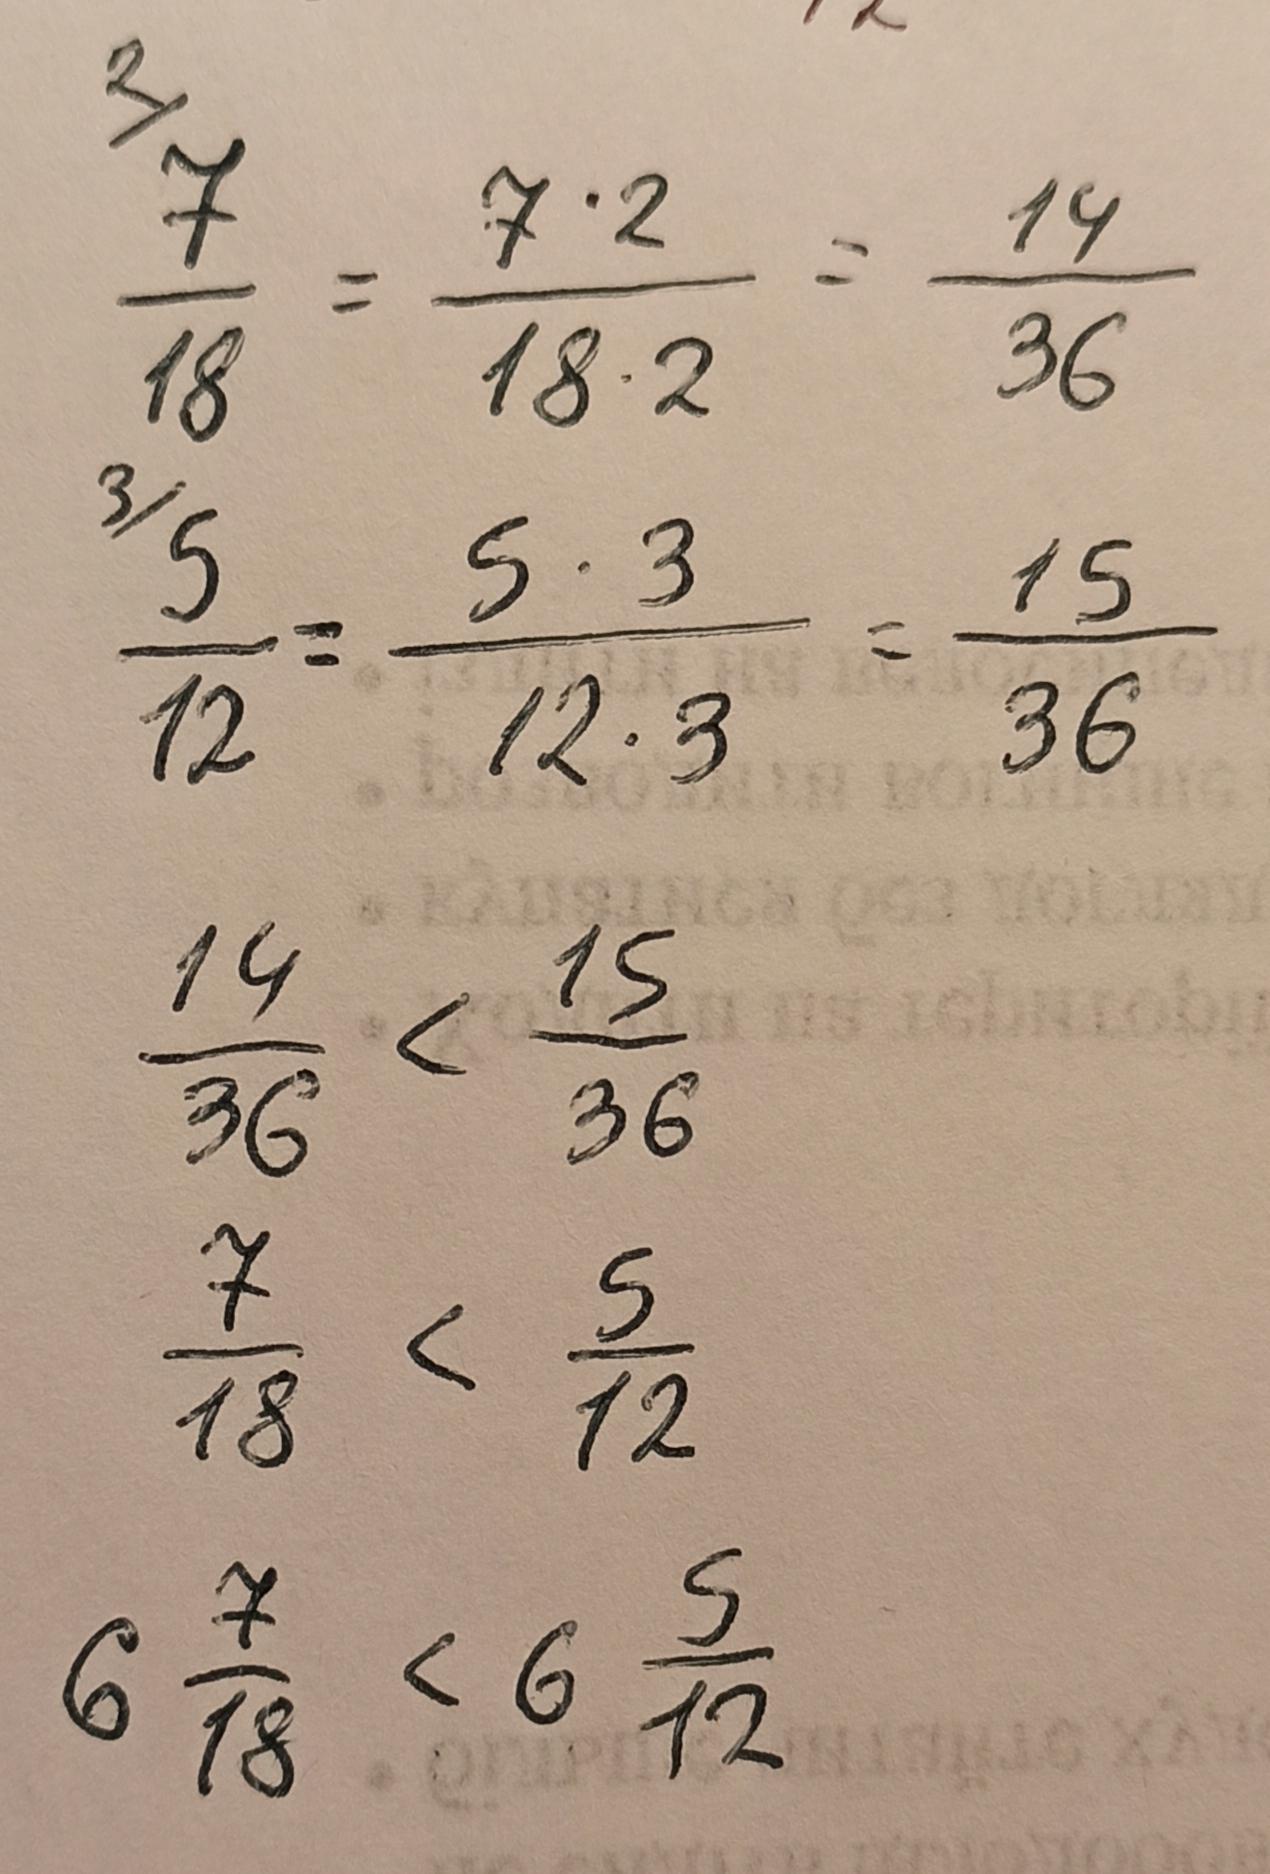 2/ 7/18 = 7·2/18·2 = 14/36
3/ 5/12 = 5·3/12·3 = 15/36
14/36 < 15/36
7/18 < 5/12
6 7/18 < 6 5/12